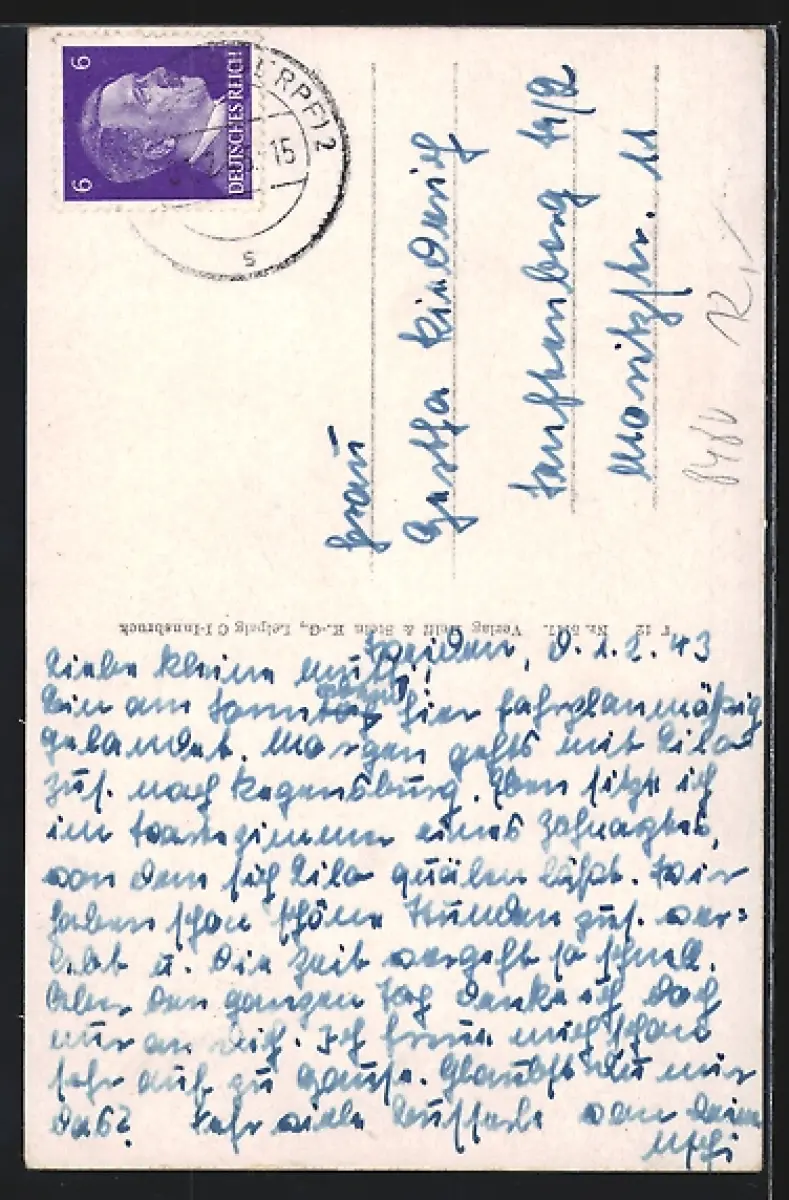 6 6
DEUTSCHES REICH
ERPF) 2
15
s
Frau
Gertha
Moritzstr. 11
Verlag & Stein K.-G., Leipzig C 1-Innsbruck
Weiden, d. 1.2.43
Liebe kleine Mutti!
Bin am Sonntag abend hier fahrplanmäßig
gelandet. Morgen gehts mit Lilo
zus. nach Regensburg. Eben sitze ich
im Wartezimmer eines Zahnarztes,
von dem sich Lilo quälen läßt. Wir
haben schon schöne Stunden zus. ver=
lebt u. die Zeit vergeht so schnell.
Aber den ganzen Tag denke ich doch
nur an dich. Ich freue mich schon
sehr auf zu Hause. Glaubst Du mir
das? Sehr viele von Deine